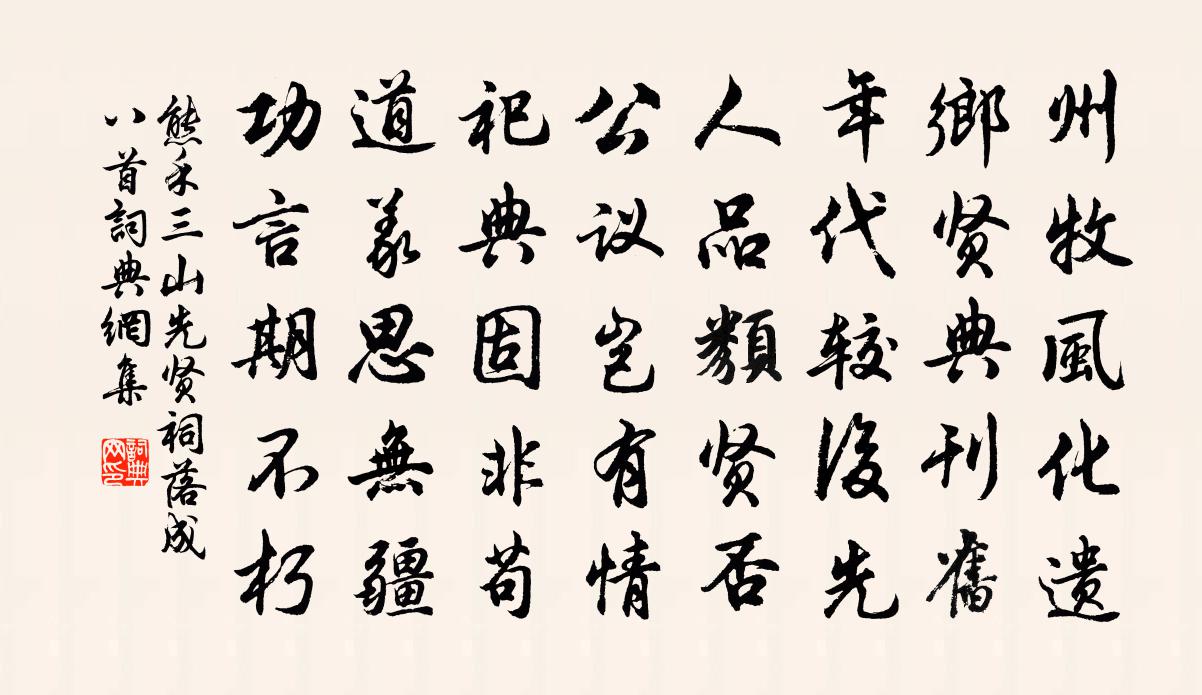 州牧風化遗
鄉贤典刊舊
年代较後先
人品類贤否
公议岂有情
祀典固非苟
道义思無疆
功言期不朽
熊禾三山先贤祠落成
八首詞典網集
詞典網印